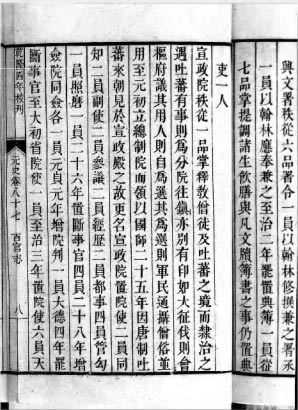 興文署秩從六品署令一員以翰林修撰兼之署丞
一員以翰林應奉兼之至治二年罷置典簿一員從
七品掌提調諸生飲膳與凡文牘簿書之事仍置典
吏一人
宣政院秩從一品掌釋敎僧徒及吐蕃之境而隸治之
遇吐蕃有事則為分院往鎮亦別有印如大征伐則會
樞府議其用人則自為選其為選則軍民通攝僧俗並
用至元初立總制院而領以國師二十五年因唐制吐
蕃來朝見於宣政殿之故更名宣政院置院使二員同
知二員副使二員參議二員經歷二員都事四員管勾
一員照磨一員二十六年置斷事官四員二十八年增
僉院同僉各一員元貞元年增院判一員大德四年罷
斷事官至大初省院使一員至治三年置院使六員天
乾隆四年校刊
元史卷八十七 百官志
八